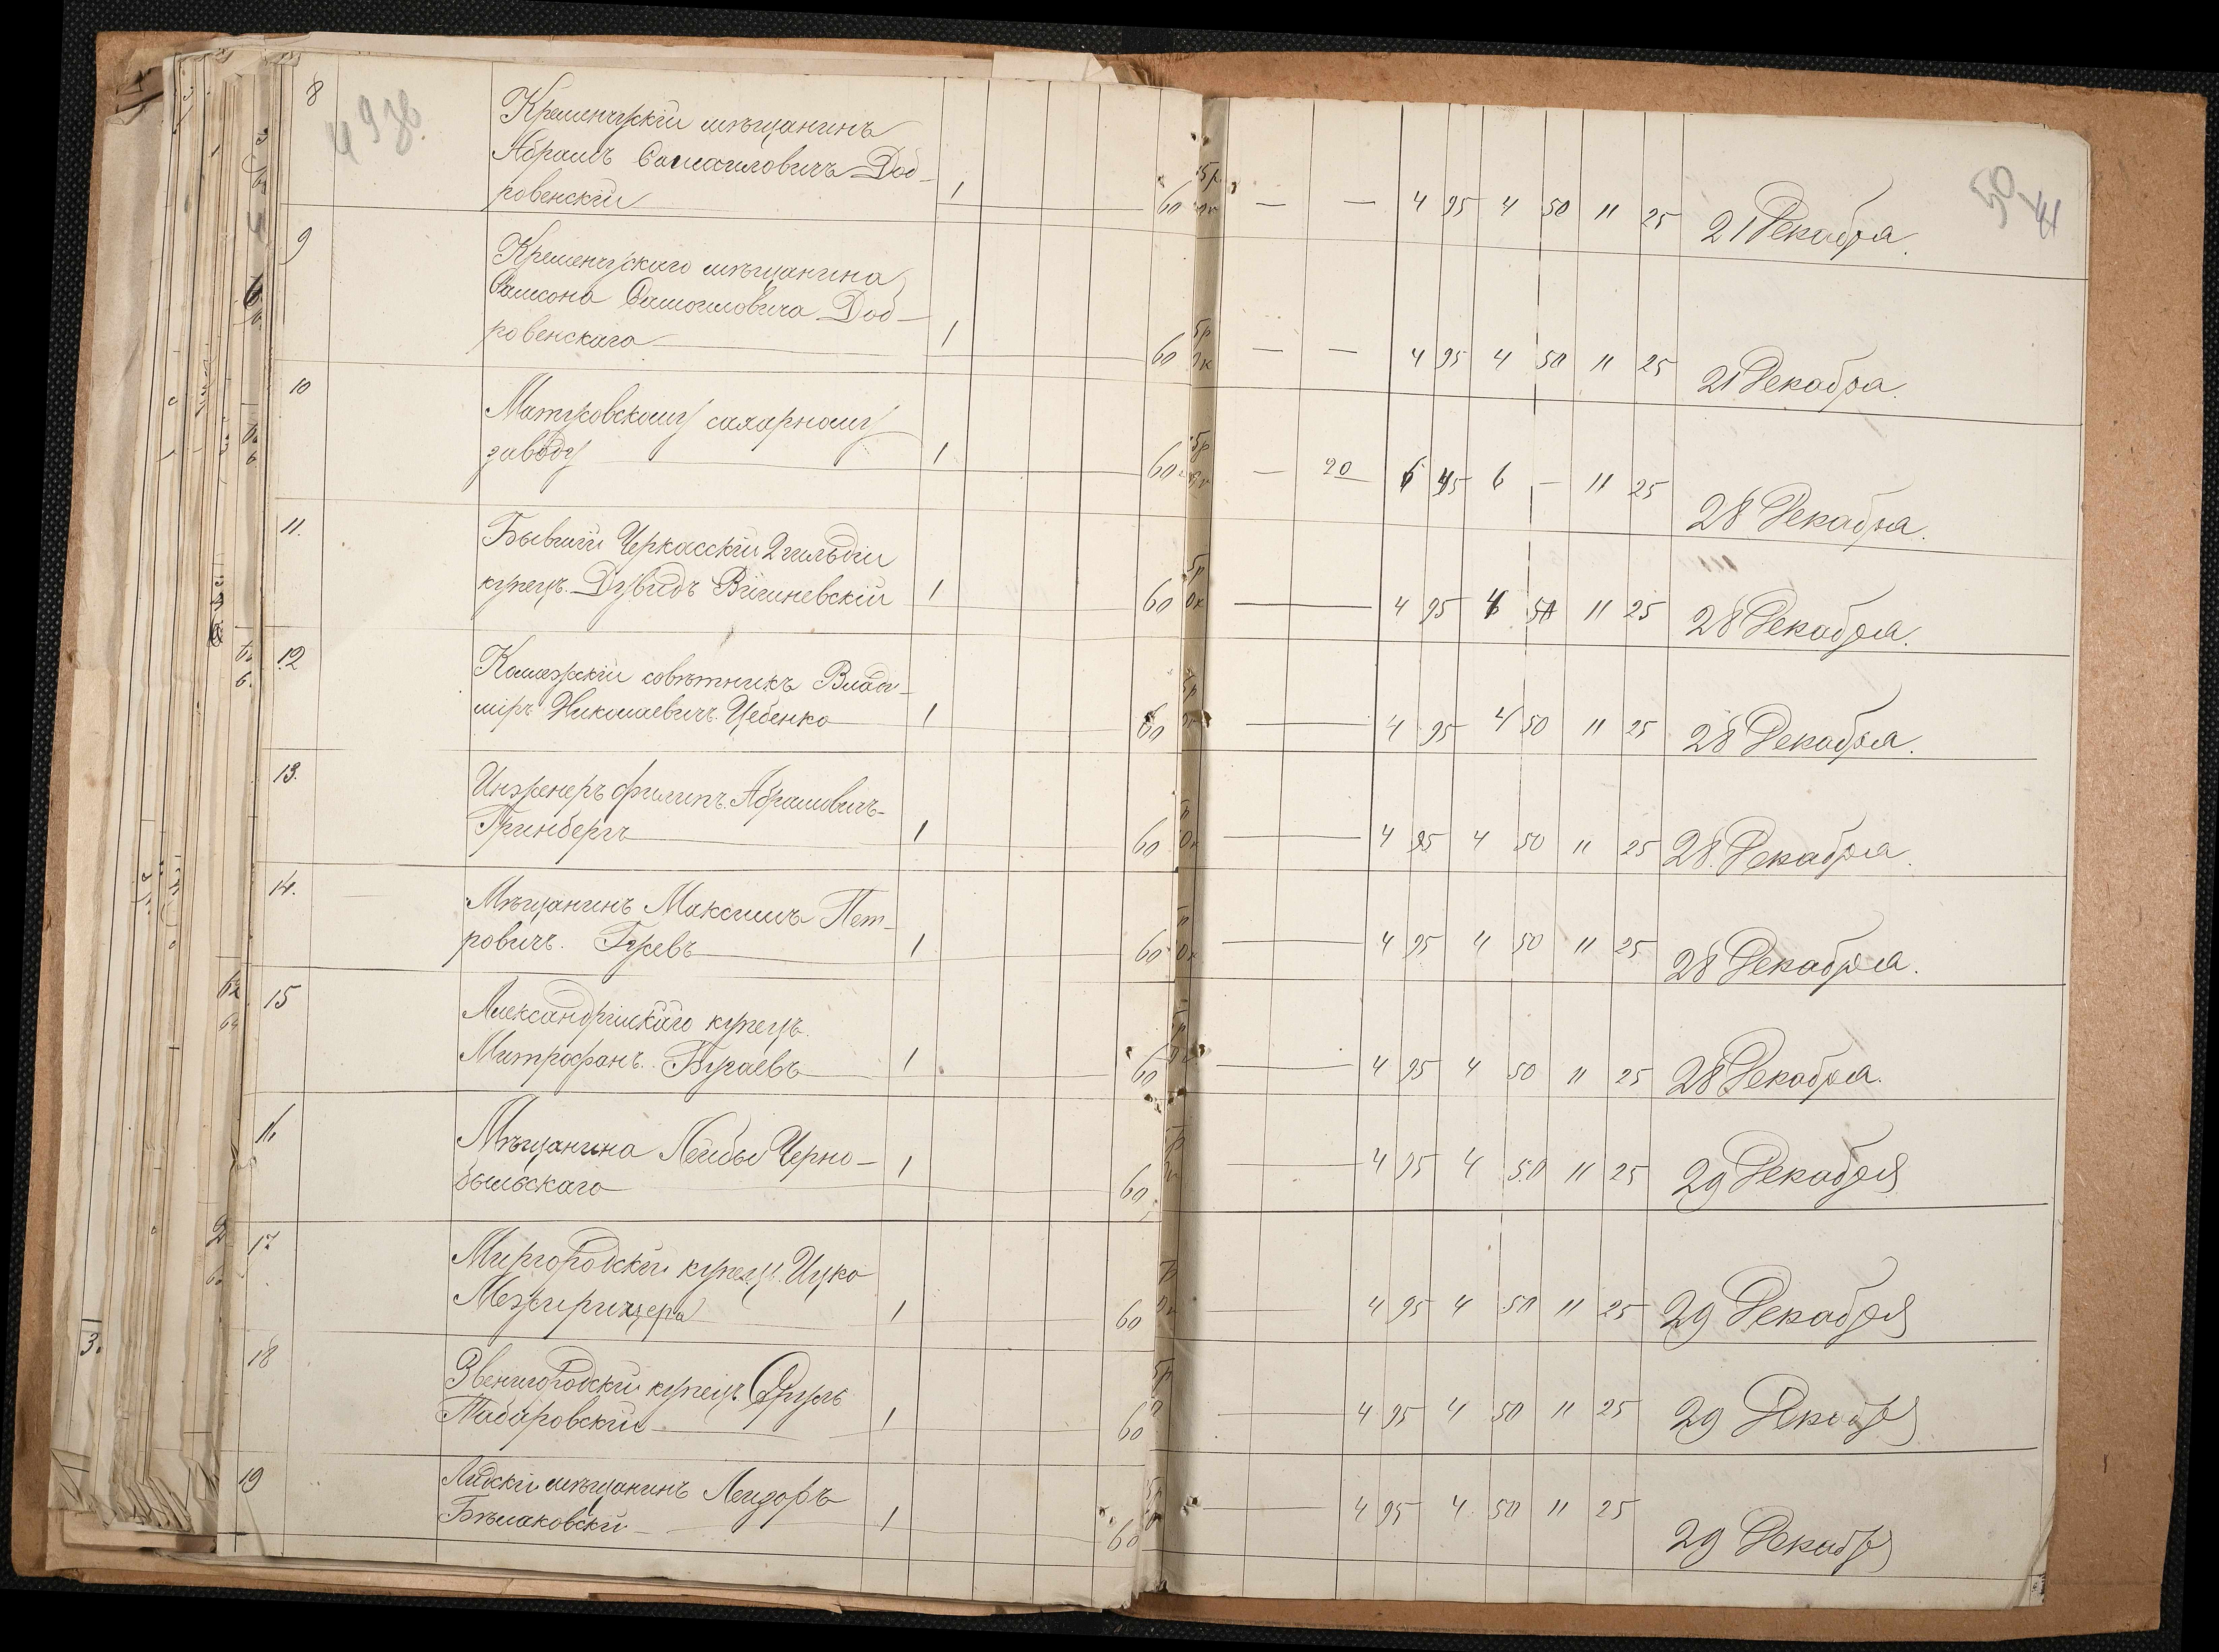 8 Кременчугскій мѣщанинъ
Абрамъ Самаиловичъ Доб-
ровенскій 1 60 — — 4 95 4 50 11 25 21 Декабря.
50
41
9 Кременчугскаго мѣщанина
Самсона Самоиловича Доб-
ровенскаго 1 60 — — 4 95 4 50 11 25 21 Декабря.
10 Матусовскому сахарному
заводу 1 60 — 20 6 45 6 — 11 25 28 Декабря.
11. Бывшій Черкасскій 2 гильдіи
купецъ Дувидъ 1 60 — 4 95 4 50 11 25 28 Декабря.
12 совѣтникъ Влади-
міръ Николаевичъ Цебенко 1 60 — 4 95 4 50 11 25 28 Декабря.
13. Инженеръ Филипъ Абрамовичъ
Гринбергъ 1 60 — 4 95 4 50 11 25 28 Декабря.
14. Мѣщанинъ Максимъ Пет-
ровичъ. Гусевъ 1 60 — 4 95 4 50 11 25 28 Декабря.
15 Александрійскаго купецъ
Митрофанъ. Бугаевъ 1 60 — 4 95 4 50 11 25 28 Декабря.
16 Мѣщанина Лейбы Черно-
быльскаго 1 60 — 4 95 4 50 11 25 29 Декабря
17 Миргородскій купецъ Ицко
Межиричера 1 60 — 4 95 4 50 11 25 29 Декабря
18 Звенигородскій купецъ Сруль
Таборовскій 1 60 — 4 95 4 50 11 25 29 Декабря
19 Лидскій мѣщанинъ Лейзоръ
Бѣлаковскій 1 60 — 4 95 4 50 11 25 29 Декабря